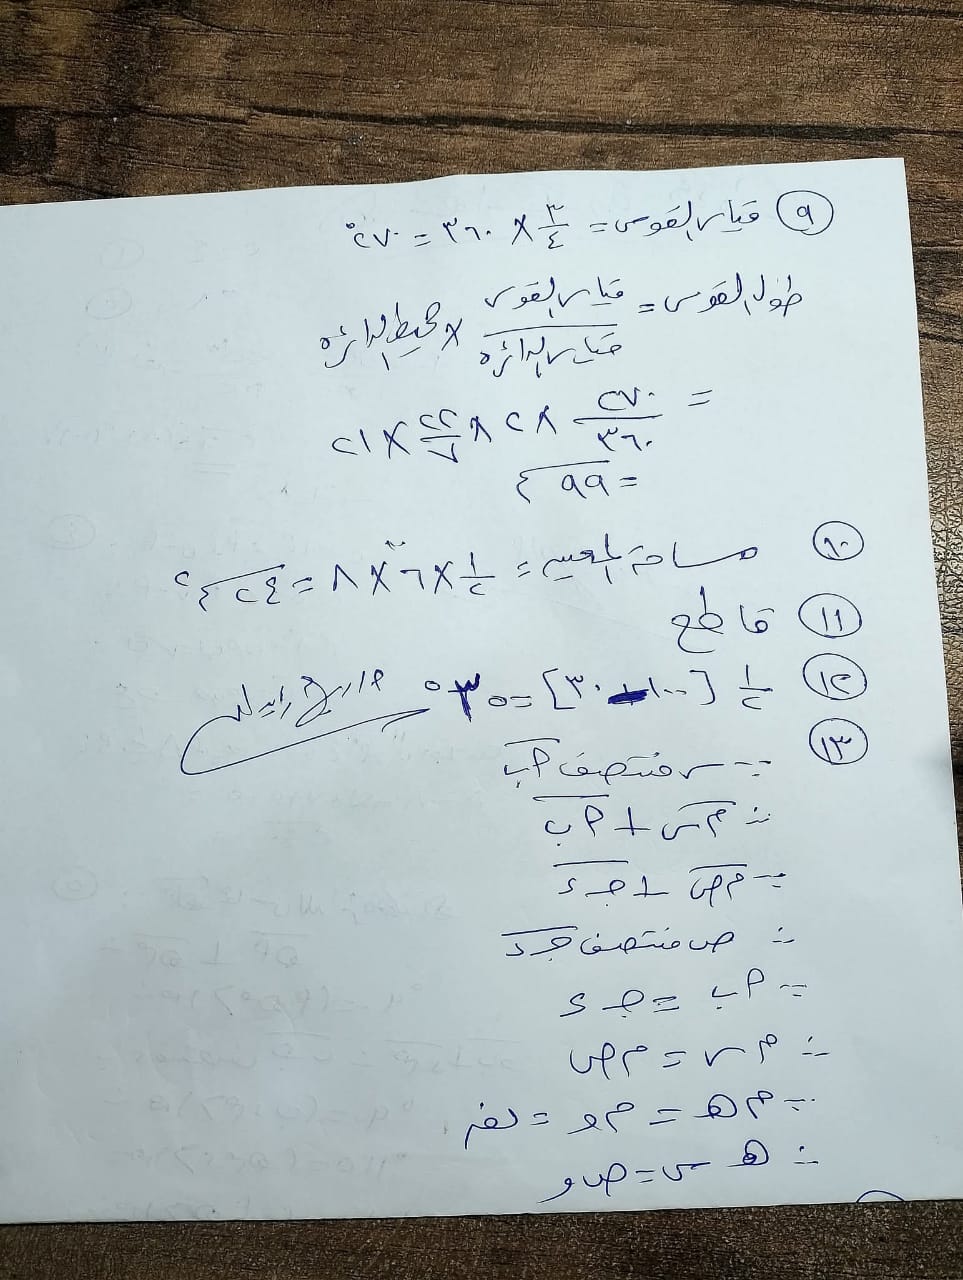 ٩ قياس القوس = ٣/٤ × ٣٦٠ = ٢٧٠°
طول القوس = قياس القوس / قياس الدائرة × محيط الدائرة
= ٢٧٠/٣٦٠ × ٢ × ٢٢/٧ × ٢١
= ٩٩ سم
١٠ مساحة المعين = ١/٢ × ٦ × ٨ = ٢٤ سم٢
١١ قاطع
١٢ ١/٢ [١٠٠ - ٣٠] = ٣٥°
١٣
∵ س منتصف أب
∴ م س ⊥ أ ب
∵ م ص ⊥ جـ د
∴ ص منتصف جـ د
∵ أ ب = جـ د
∴ م س = م ص
∵ م هـ = م و = نق
∴ هـ س = ص و